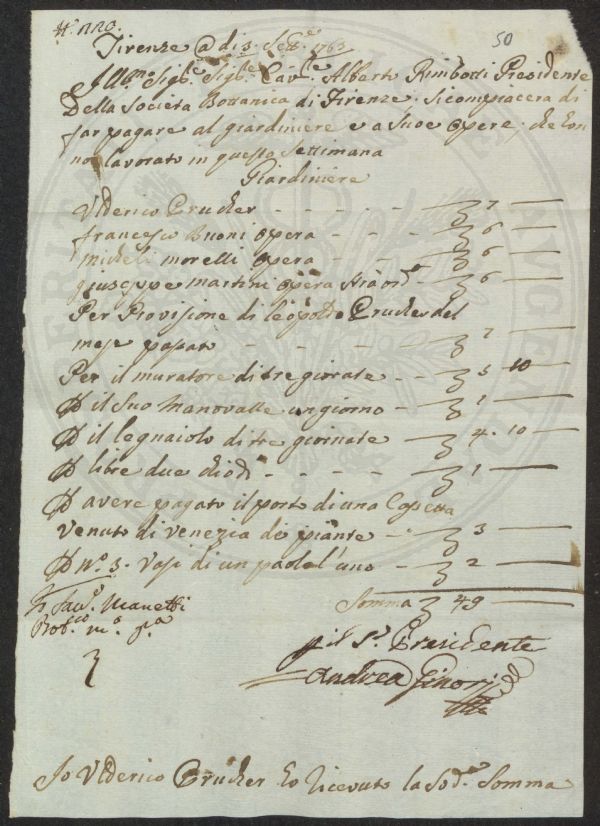 50
Firenze @ di 3. Sett.e 1763
Ill.mo Sig.re Sig.re Cav.re Alberto Rimbotti Presidente
Della Societa Bottanica di Firenze. Si compiacera di
far pagare al giardiniere e a Sue opere, che han
no lavorato in questa Settimana
Giardiniere
Vlderico Prucker - - - - 7
francesco Buoni opera - - 6
micheli morelli opera - - 6
giuseppe martini opera straord.a - 6
Per Provisione di leopoldo Prucker del
mese passato - - - - 7
Per il muratore di tre giornate - - 5 10
P il Suo Manovalle un giorno - 1
P il legnaiolo di tre giornate - 4. 10
P libre due chiodi - - - - 1
P avere pagato il porto di una Cassetta
Venuto di Venezia de piante - - 3
P N.o 3. Vasi di un paolo l'uno - 2
Somma 49
Sav.o Manetti
il S.r Presidente
Andrea Ginori
Io Vlderico Prucker ho ricevuto la Sod.a Somma